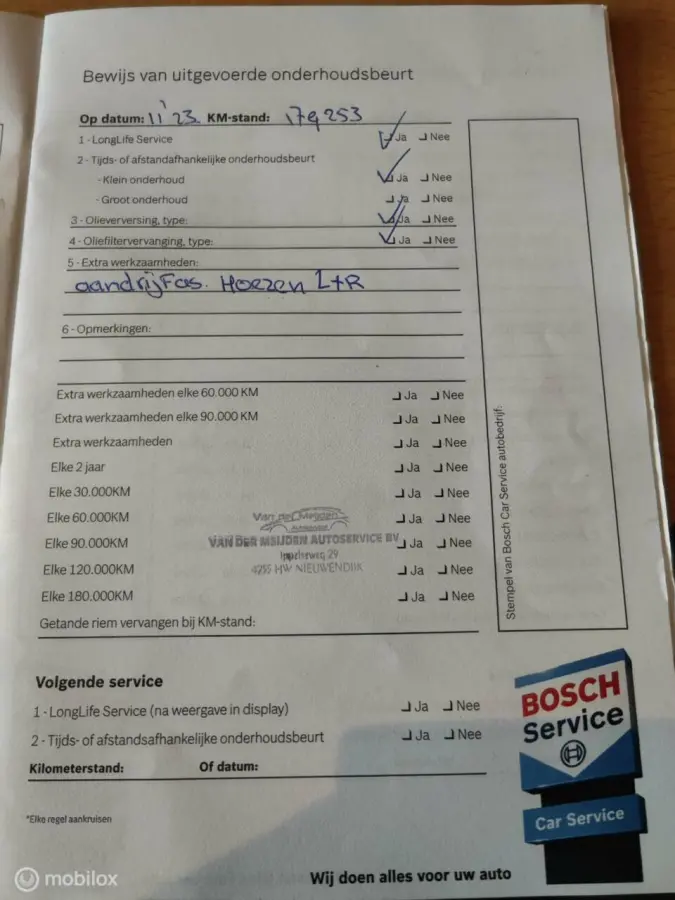 Bewijs van uitgevoerde onderhoudsbeurt
Op datum: 11'23. KM-stand: 179253
1 - LongLife Service Ja Nee
2 - Tijds- of afstandafhankelijke onderhoudsbeurt
- Klein onderhoud Ja Nee
- Groot onderhoud Ja Nee
3 - Olieverversing, type: Ja Nee
4 - Oliefiltervervanging, type: Ja Nee
5 - Extra werkzaamheden:
aandrijFas. Hoezen L+R
6 - Opmerkingen:
Extra werkzaamheden elke 60.000 KM Ja Nee
Extra werkzaamheden elke 90.000 KM Ja Nee
Extra werkzaamheden Ja Nee
Elke 2 jaar Ja Nee
Elke 30.000KM Ja Nee
Elke 60.000KM Ja Nee
Elke 90.000KM Ja Nee
Elke 120.000KM Ja Nee
Elke 180.000KM Ja Nee
Van der Meijden
VAN DER MEIJDEN AUTOSERVICE BV
29
4255 HW NIEUWENDIJK
Getande riem vervangen bij KM-stand:
Stempel van Bosch Car Service autobedrijf:
Volgende service
1 - LongLife Service (na weergave in display) Ja Nee
2 - Tijds- of afstandsafhankelijke onderhoudsbeurt Ja Nee
Kilometerstand: Of datum:
*Elke regel aankruisen
BOSCH
Service
Car Service
Wij doen alles voor uw auto
mobilox